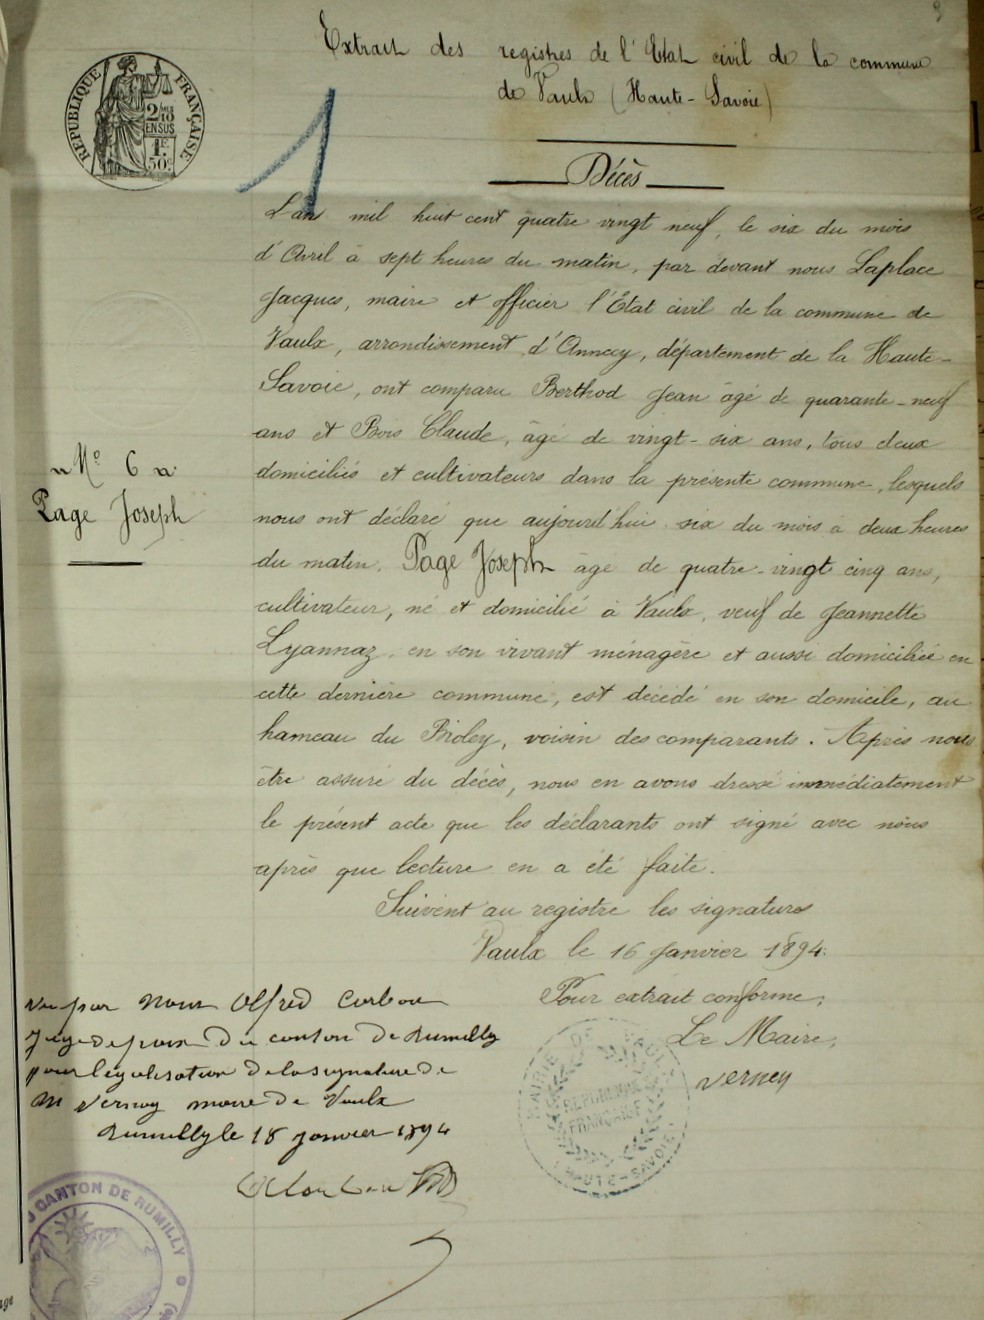 9
Extrait des registres de l'Etat civil de la commune
de Vaulx (Haute-Savoie)
RÉPUBLIQUE FRANÇAISE
2/10
EN SUS
1F.
50c.
1
Décès
L'an mil huit cent quatre vingt neuf, le six du mois
d'Avril à sept heures du matin, par devant nous Laplace
Jacques, maire et officier l'Etat civil de la commune de
Vaulx, arrondissement d'Annecy, département de la Haute-
Savoie, ont comparu Berthod Jean âgé de quarante-neuf
ans et Bois Claude, âgé de vingt-six ans, tous deux
domiciliés et cultivateurs dans la présente commune, lesquels
nous ont déclaré que aujourd'hui six du mois à deux heures
du matin, Page Joseph âgé de quatre-vingt cinq ans,
cultivateur, né et domicilié à Vaulx, veuf de Jeannette
Lyannaz, en son vivant ménagère et aussi domiciliée en
cette dernière commune, est décédé en son domicile, au
hameau du Bioley, voisin des comparants. Après nous
être assuré du décès, nous en avons dressé immédiatement
le présent acte que les déclarants ont signé avec nous
après que lecture en a été faite.
N° 6
Page Joseph
Suivent au registre les signatures
Vaulx le 16 Janvier 1894.
Pour extrait conforme,
Le Maire,
Verney
MAIRIE DE VAULX
RÉPUBLIQUE
FRANÇAISE
(HAUTE-SAVOIE)
Vu par Nous Alfred
Juge de paix du canton de Rumilly
pour légalisation de la signature de
M Verney maire de Vaulx
Rumilly le 18 janvier 1894
CANTON DE RUMILLY